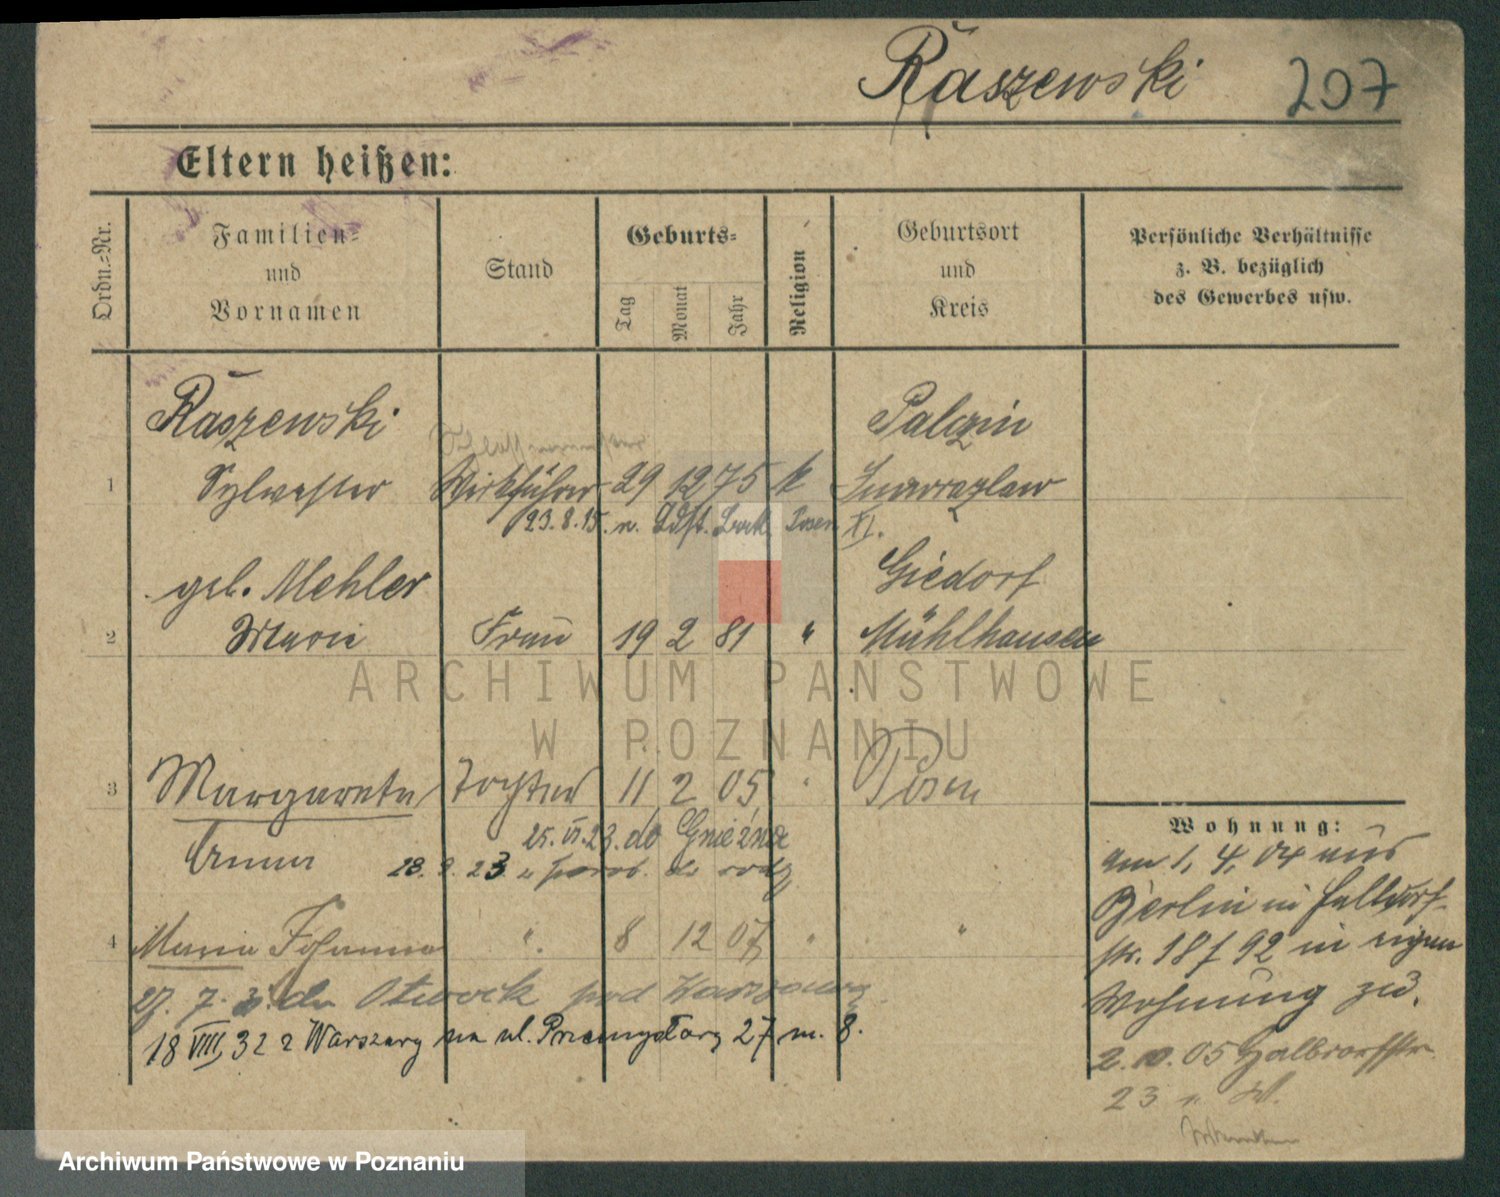 Raszewski 207
Eltern heißen:
Ordn.-Nr.
Familien-
und
Vornamen
Stand
Geburts-
Tag
Monat
Jahr
Religion
Geburtsort
und
Kreis
Persönliche Verhältnisse
z. B. bezüglich
des Gewerbes usw.
Raszewski Palczin
1 Sylvester Werkführer 29 12 75 k Inowrazlaw
23.8.15. n. Ldst. Posen XI.
geb. Mehler Giedorf
2 Marie Frau 19 2 81 " Mühlhausen
ARCHIWUM PAŃSTWOWE
W POZNANIU
3 Margarete Tochter 11 2 05 " Posen
25.VI.23. do Gniezna
Anna 18.9.23
4 Maria Johanna " 8 12 07 " "
27.7. do Otwock pod Warszawą
18 VIII 32 z Warszawy na ul. Przemysłową 27 m. 8.
Wohnung:
am 1.4.04 aus
Berlin in Halldorf-
str. 18 f 92 in eigen
Wohnung zu.
2.10.05 Halbdorfstr.
23
Archiwum Państwowe w Poznaniu